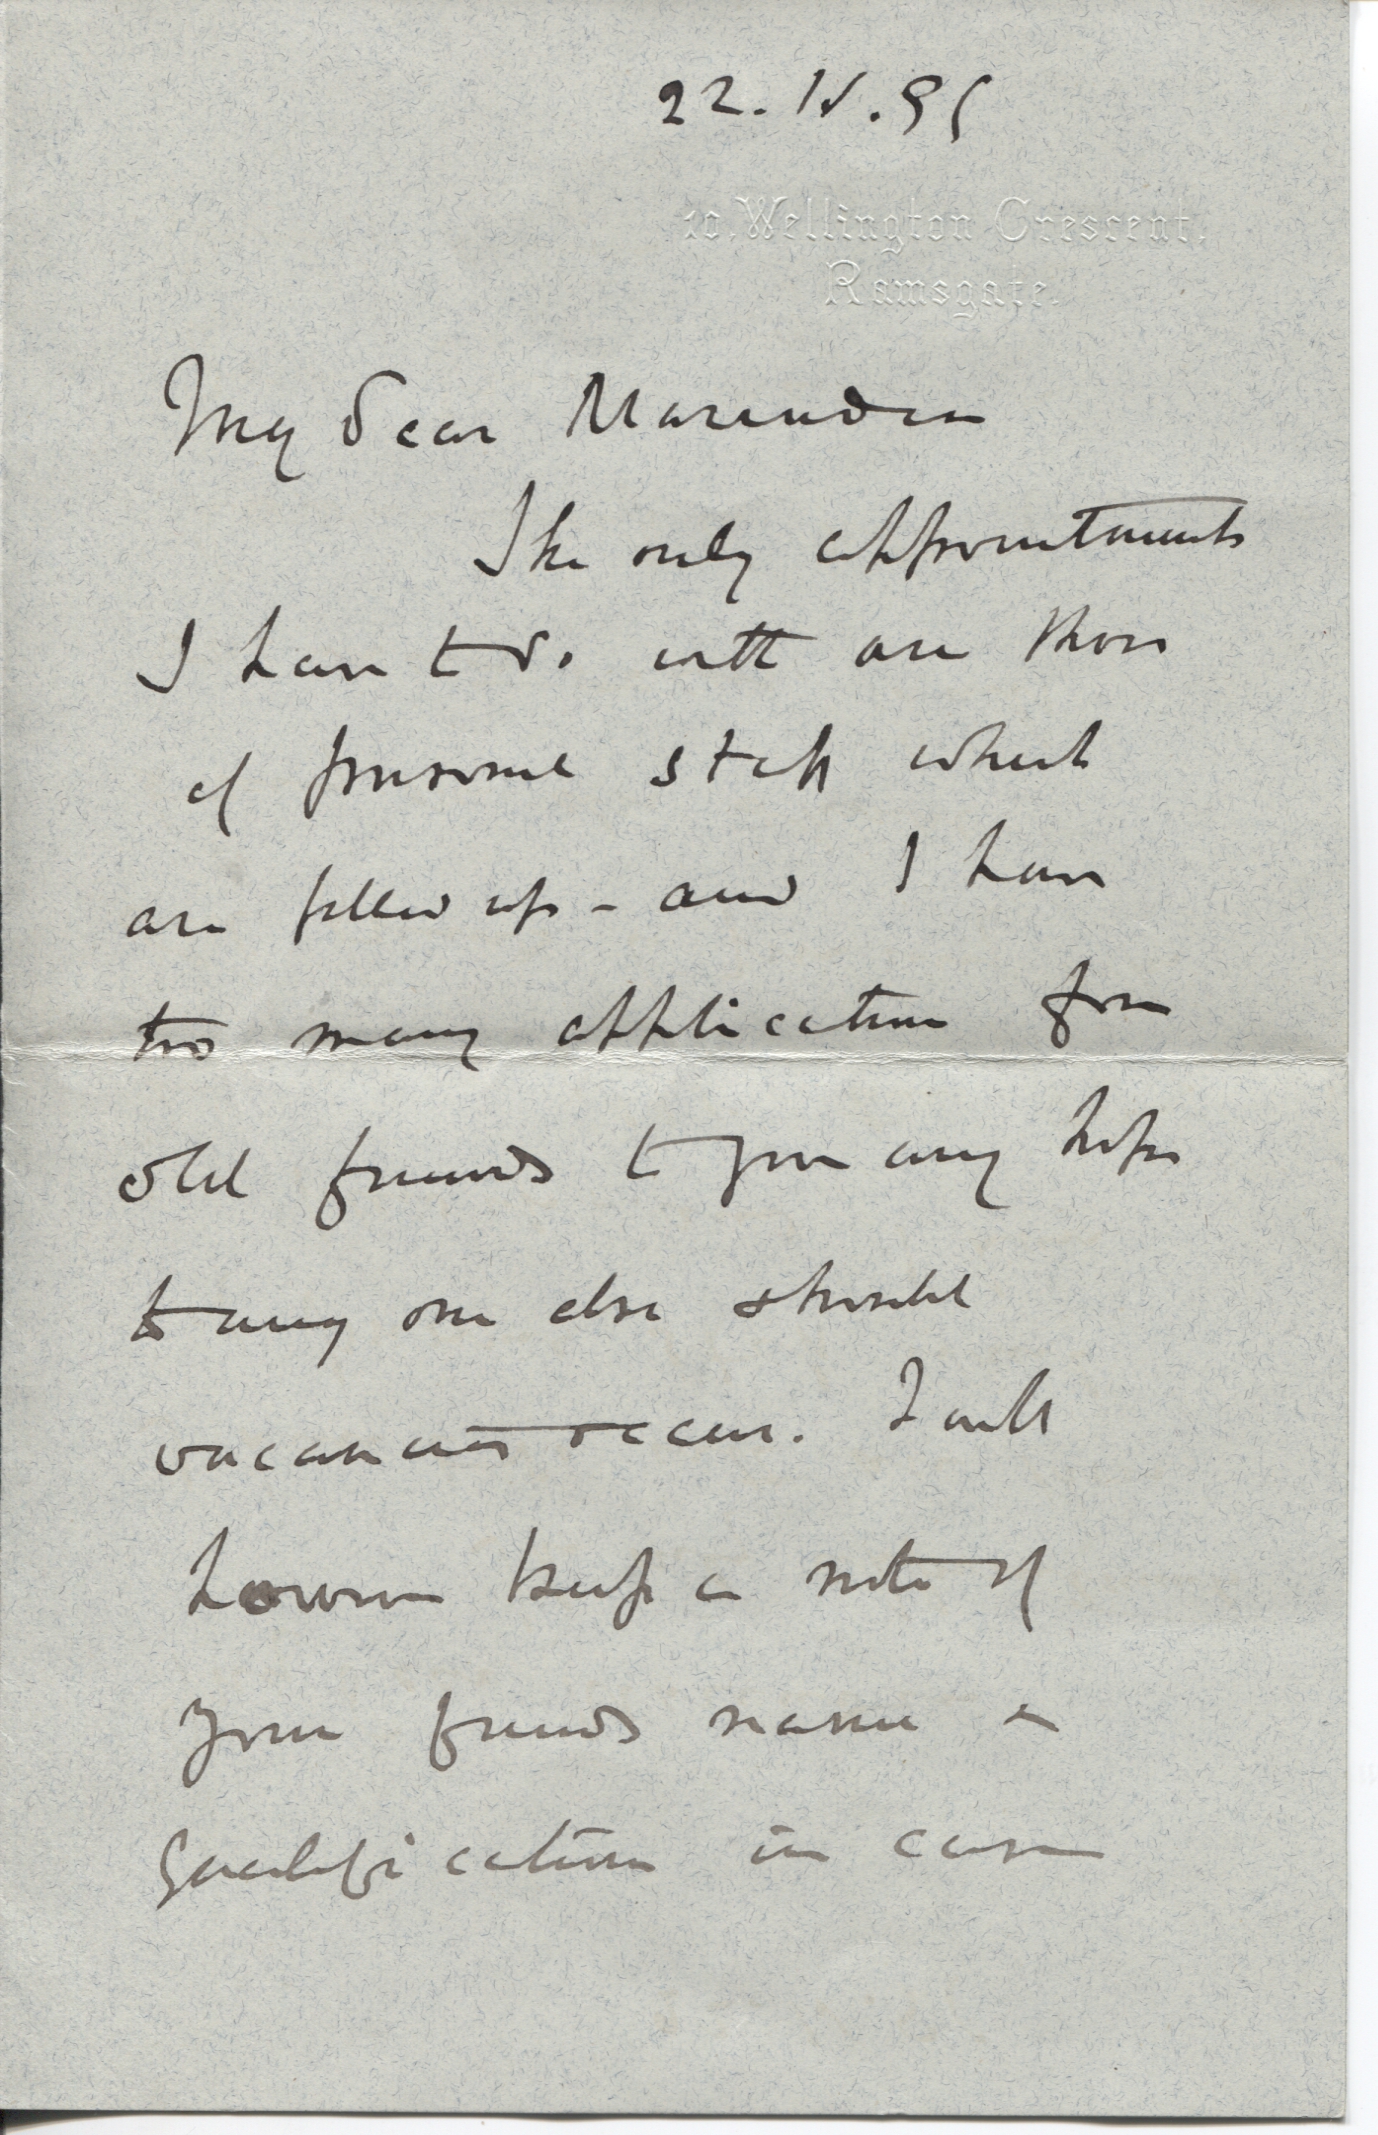 22. IV. 95
10, Wellington Crescent,
Ramsgate.
My dear Marindin
The only appointments
I have to do with are those
of personal staff which
are filled up - and I have
too many applications from
old friends to give any hopes
to any one else should
vacancies occur. I will
however keep a note of
your friends name &
qualifications in case